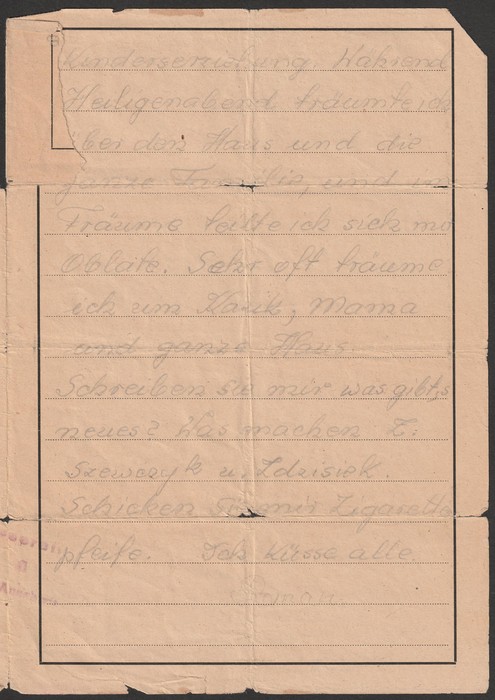 Kinderserustung. Während
Heiligenabend träumte ich
über den Haus und die
ganze Familie, und im
Träume teilte ich sich mit
Oblate. Sehr oft träume
ich um Kazik, Mama
und ganze Haus.
Schreiben sie mir was gibt,s
neues? Was machen Z.
Szewczyk u. Zdzisiek.
Schicken Sie mir Zigarette
pfeife. Ich küsse alle.
Roman